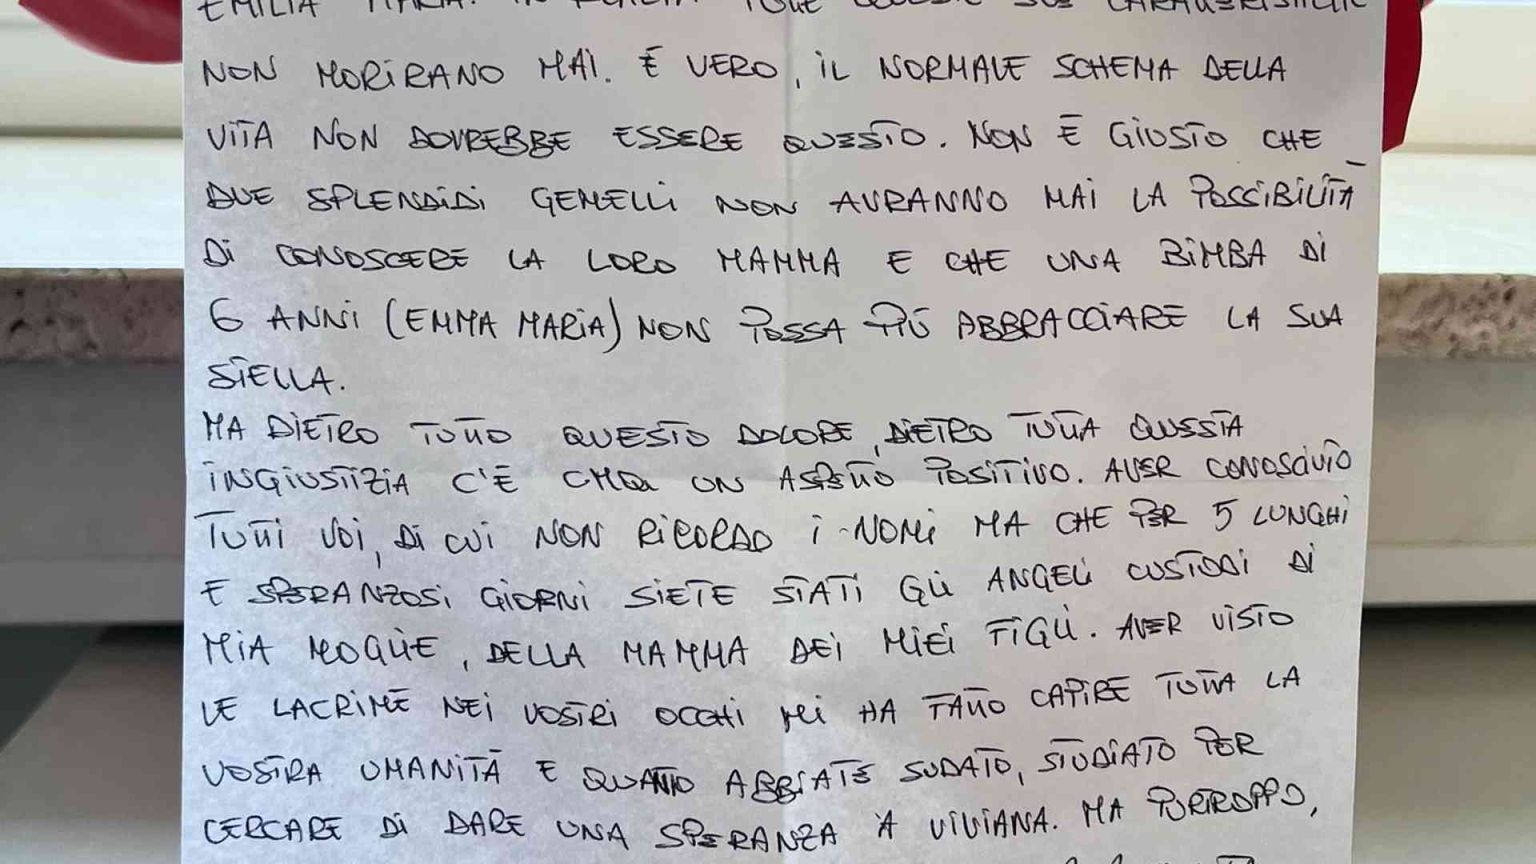 EMILIA MARIA. IN REALTÀ TUTTE QUESTE SUE CARATTERISTICHE
NON MORIRANO MAI. È VERO, IL NORMALE SCHEMA DELLA
VITA NON DOVREBBE ESSERE QUESTO. NON È GIUSTO CHE
DUE SPLENDIDI GEMELLI NON AVRANNO MAI LA POSSIBILITÀ
DI CONOSCERE LA LORO MAMMA E CHE UNA BIMBA DI
6 ANNI (EMMA MARIA) NON POSSA PIÙ ABBRACCIARE LA SUA
STELLA.
MA DIETRO TUTTO QUESTO DOLORE, DIETRO TUTTA QUESTA
INGIUSTIZIA C'È UN ASPETTO POSITIVO. AVER CONOSCIUTO
TUTTI VOI, DI CUI NON RICORDO I NOMI MA CHE PER 5 LUNGHI
E SPERANZOSI GIORNI SIETE STATI GLI ANGELI CUSTODI DI
MIA MOGLIE, DELLA MAMMA DEI MIEI FIGLI. AVER VISTO
LE LACRIME NEI VOSTRI OCCHI MI HA FATTO CAPIRE TUTTA LA
VOSTRA UMANITÀ E QUANTO ABBIATE SUDATO, STUDIATO PER
CERCARE DI DARE UNA SPERANZA A VIVIANA. MA PURTROPPO,